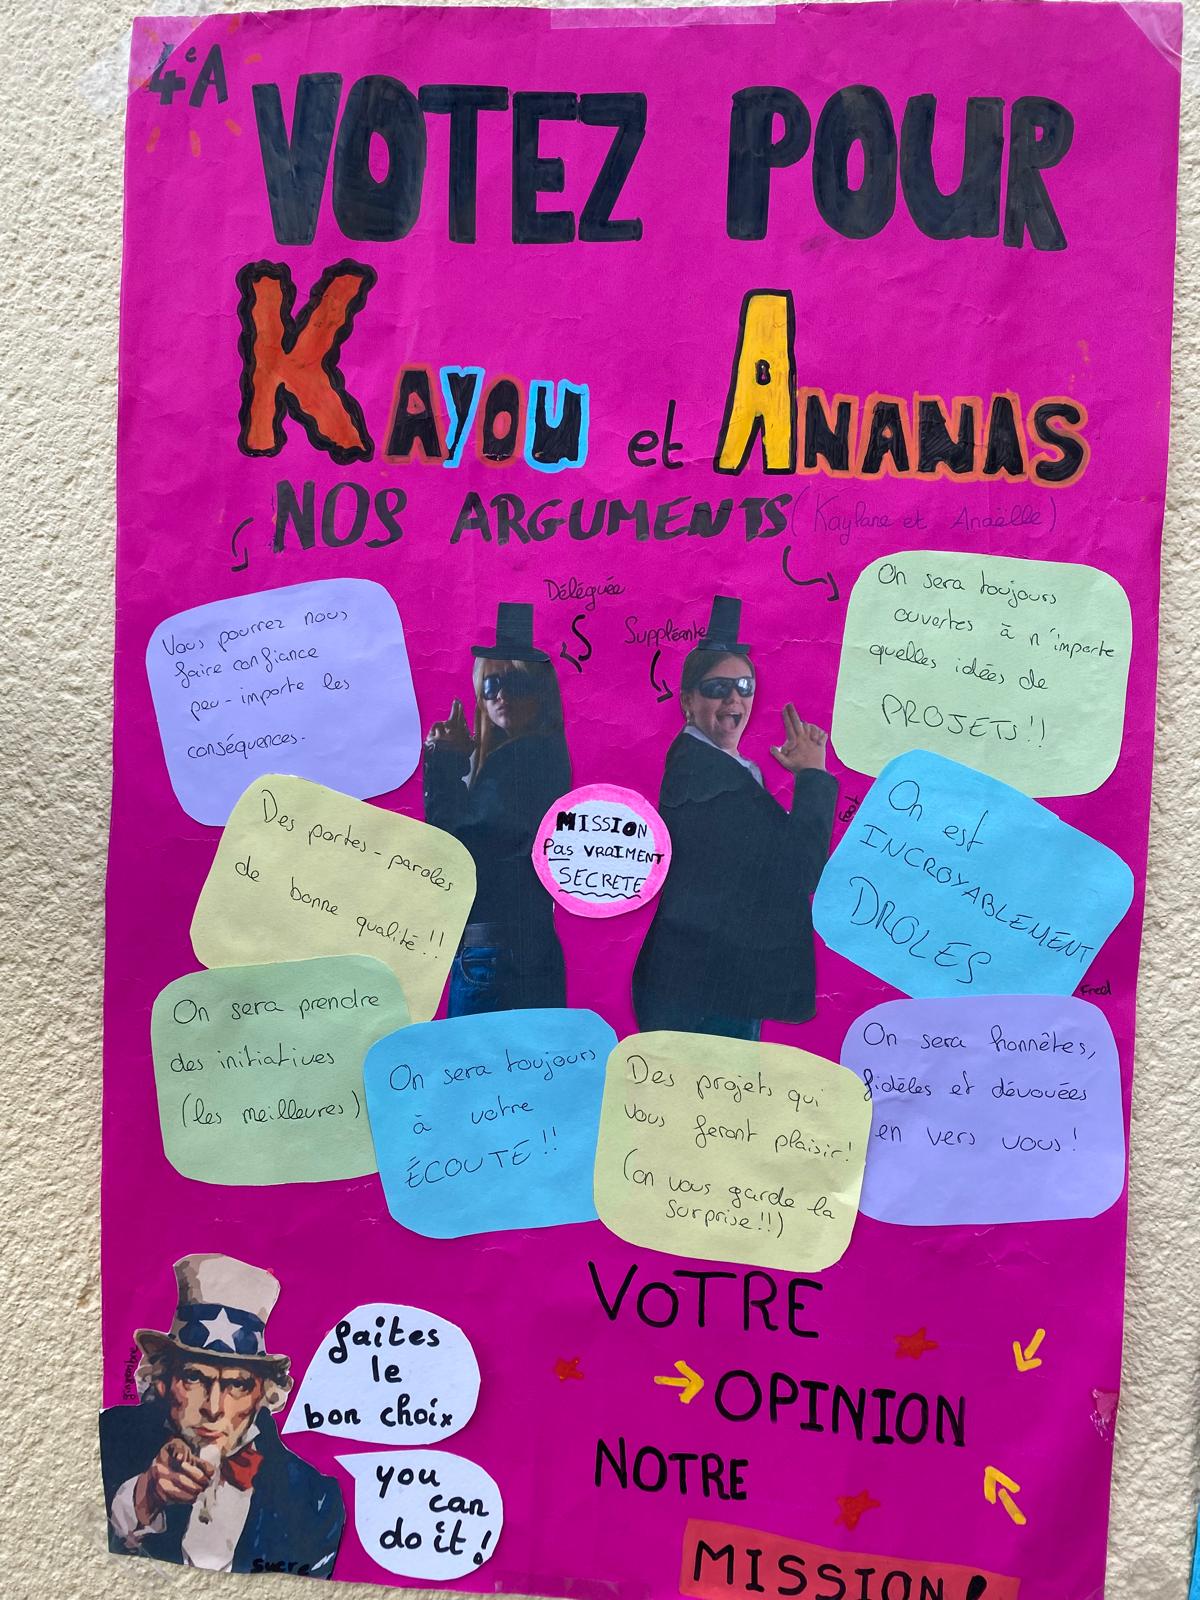 4eA
VOTEZ POUR
KAYOU et ANANAS
NOS ARGUMENTS (Kaylane et Anaëlle)
Déléguée
Suppléante
Vous pourrez nous
faire confiance
peu-importe les
conséquences.
On sera toujours
ouvertes à n'importe
quelles idées de
PROJETS!!
Des portes-paroles
de bonne qualité!!
MISSION
Pas VRAIMENT
SECRETE
On est
INCROYABLEMENT
DROLES
Fred
On sera prendre
des initiatives
(les meilleures)
On sera toujours
à votre
ÉCOUTE!!
Des projets qui
vous feront plaisir!
(on vous garde la
surprise!!)
On sera honnêtes,
fidèles et dévouées
en vers vous!
gingembre
faites
le
bon choix
you
can
do it!
sucre
VOTRE
OPINION
NOTRE
MISSION!